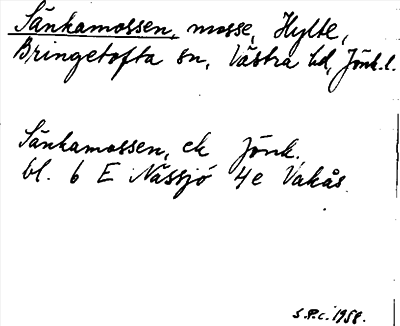 Sänkamossen, mosse, Hylte,
Bringetofta sn, Västra hd, Jönk. l.
Sänkamossen, ek Jönk.
bl. 6 E Nässjö 4e Vakås.
S.P.C. 1958.